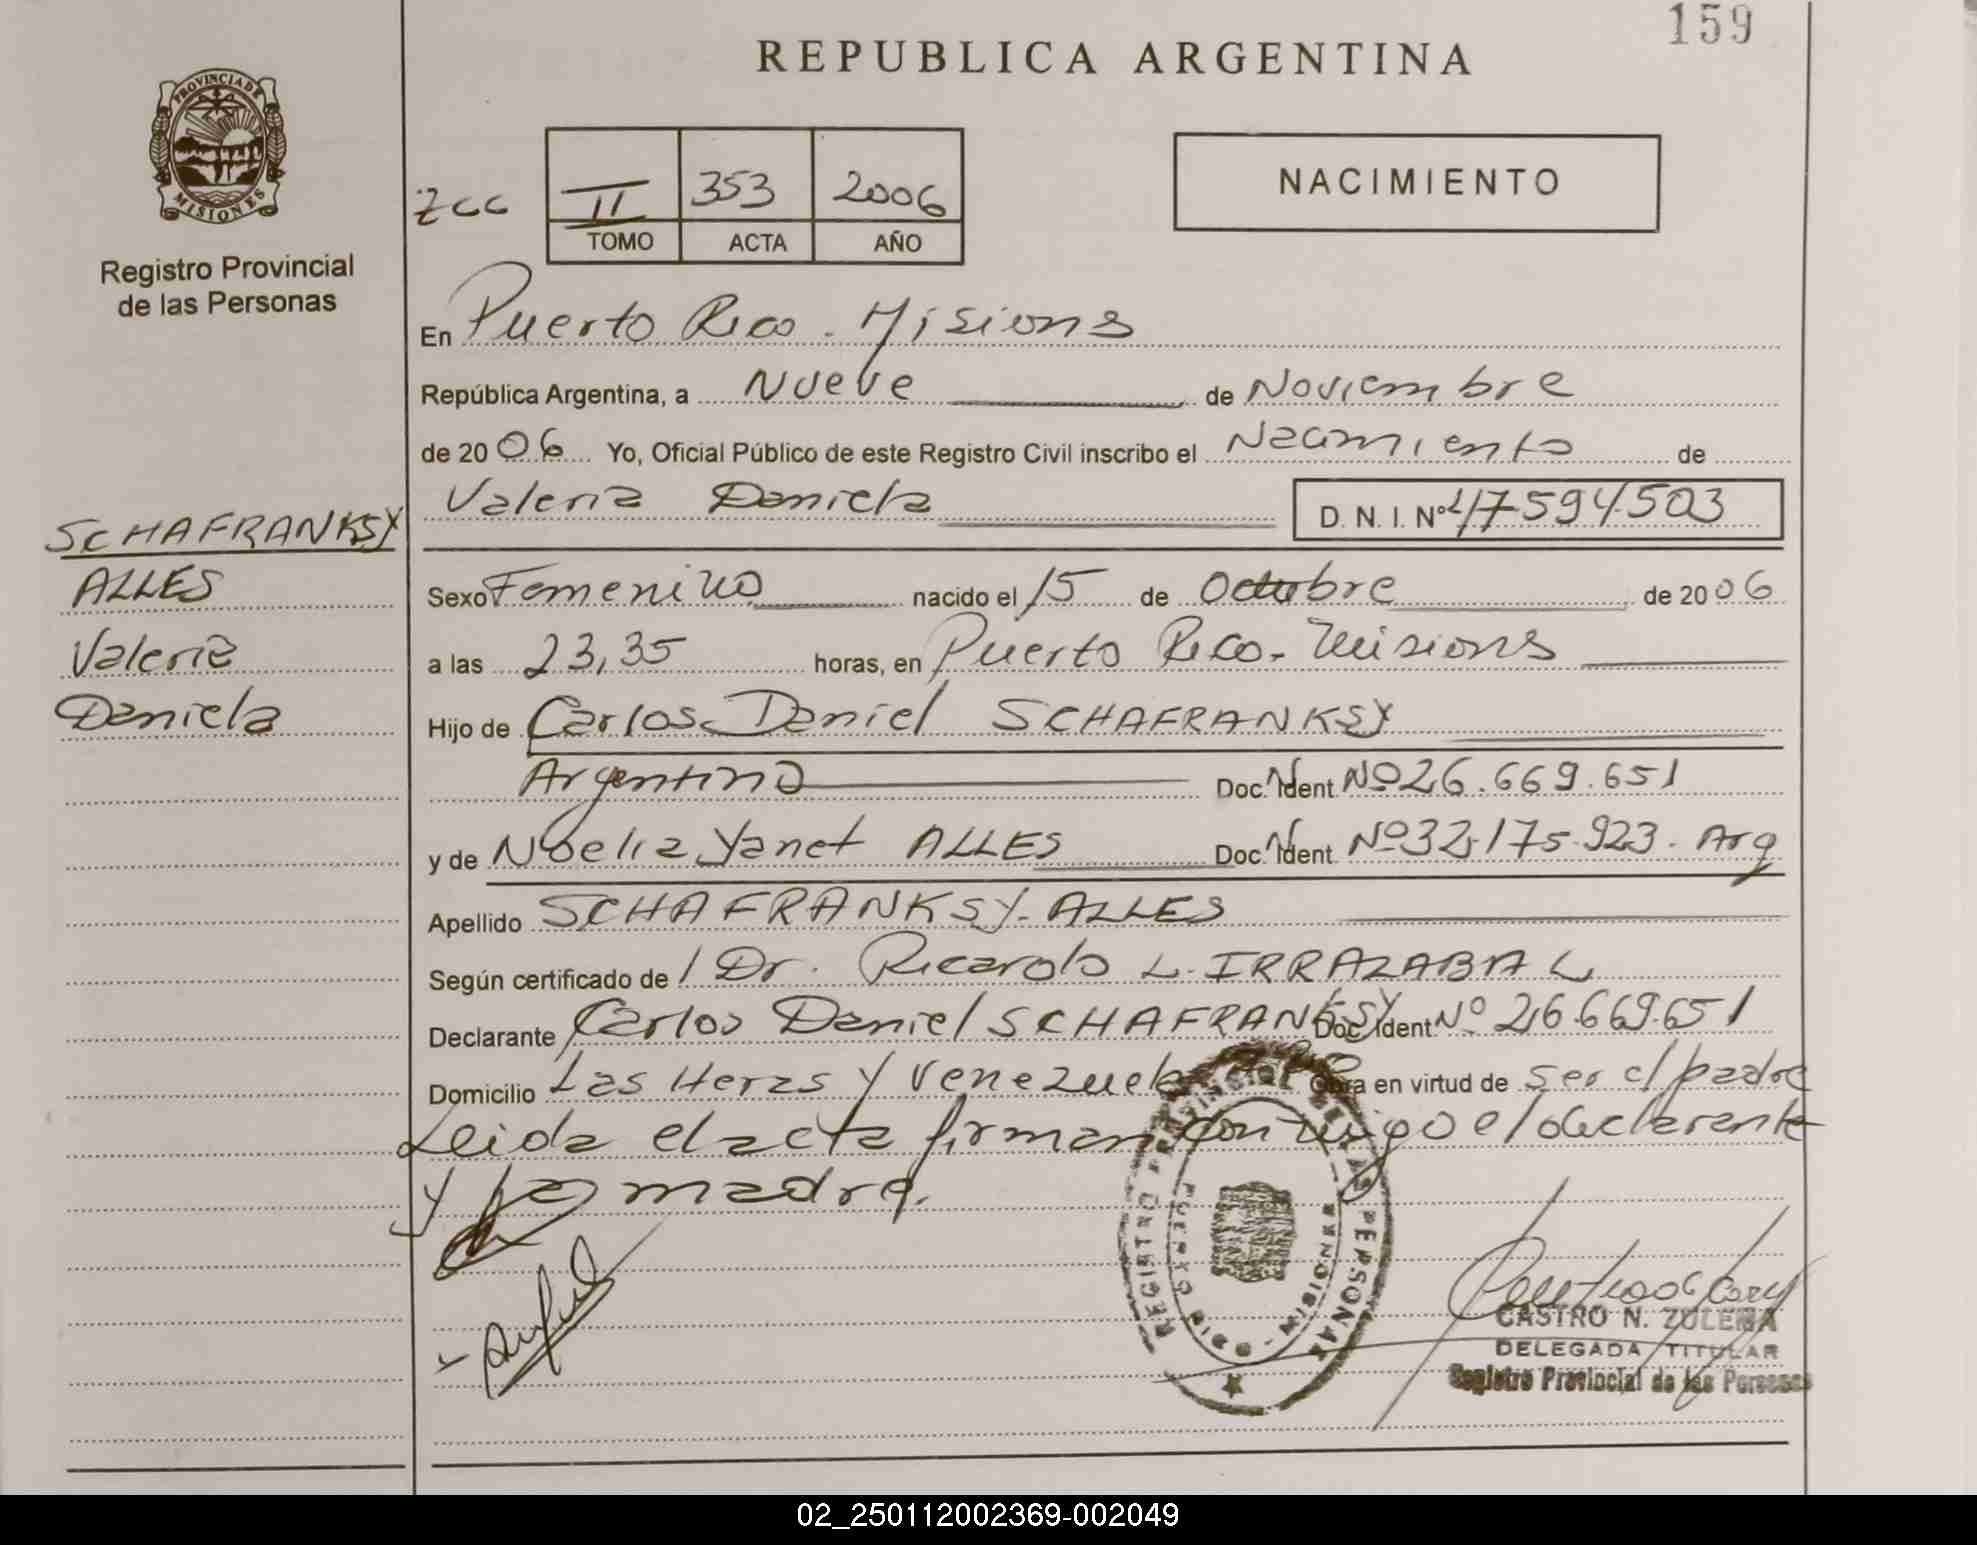 159
REPUBLICA ARGENTINA
PROVINCIA DE MISIONES
Registro Provincial
de las Personas
NACIMIENTO
II 353 2006
TOMO ACTA AÑO
En Puerto Rico - Misiones
República Argentina, a Nueve de Noviembre
de 2006 Yo, Oficial Público de este Registro Civil inscribo el Nacimiento de
Valeria Daniela D. N. I. Nº 47594503
SCHAFRANKSY
ALLES
Valeria
Daniela
Sexo Femenino nacido el 15 de Octubre de 2006
a las 23,35 horas, en Puerto Rico - Misiones
Hijo de Carlos Daniel SCHAFRANKSY
Argentino Doc. Ident. Nº 26.669.651
y de Noelia Yanet ALLES Doc. Ident. Nº 32.175.923 - Arg
Apellido SCHAFRANKSY - ALLES
Según certificado de l Dr. Ricardo L. IRRAZABAL
Declarante Carlos Daniel SCHAFRANKSY Doc. Ident. Nº 26.669.651
Domicilio Las Heras y Venezuela Obra en virtud de ser el padre
Leida el acta firman conmigo el declarante
y la madre.
REGISTRO PROVINCIAL DE LAS PERSONAS
PUERTO RICO - MISIONES
CASTRO N. ZULEMA
DELEGADA TITULAR
Registro Provincial de las Personas
02_250112002369-002049